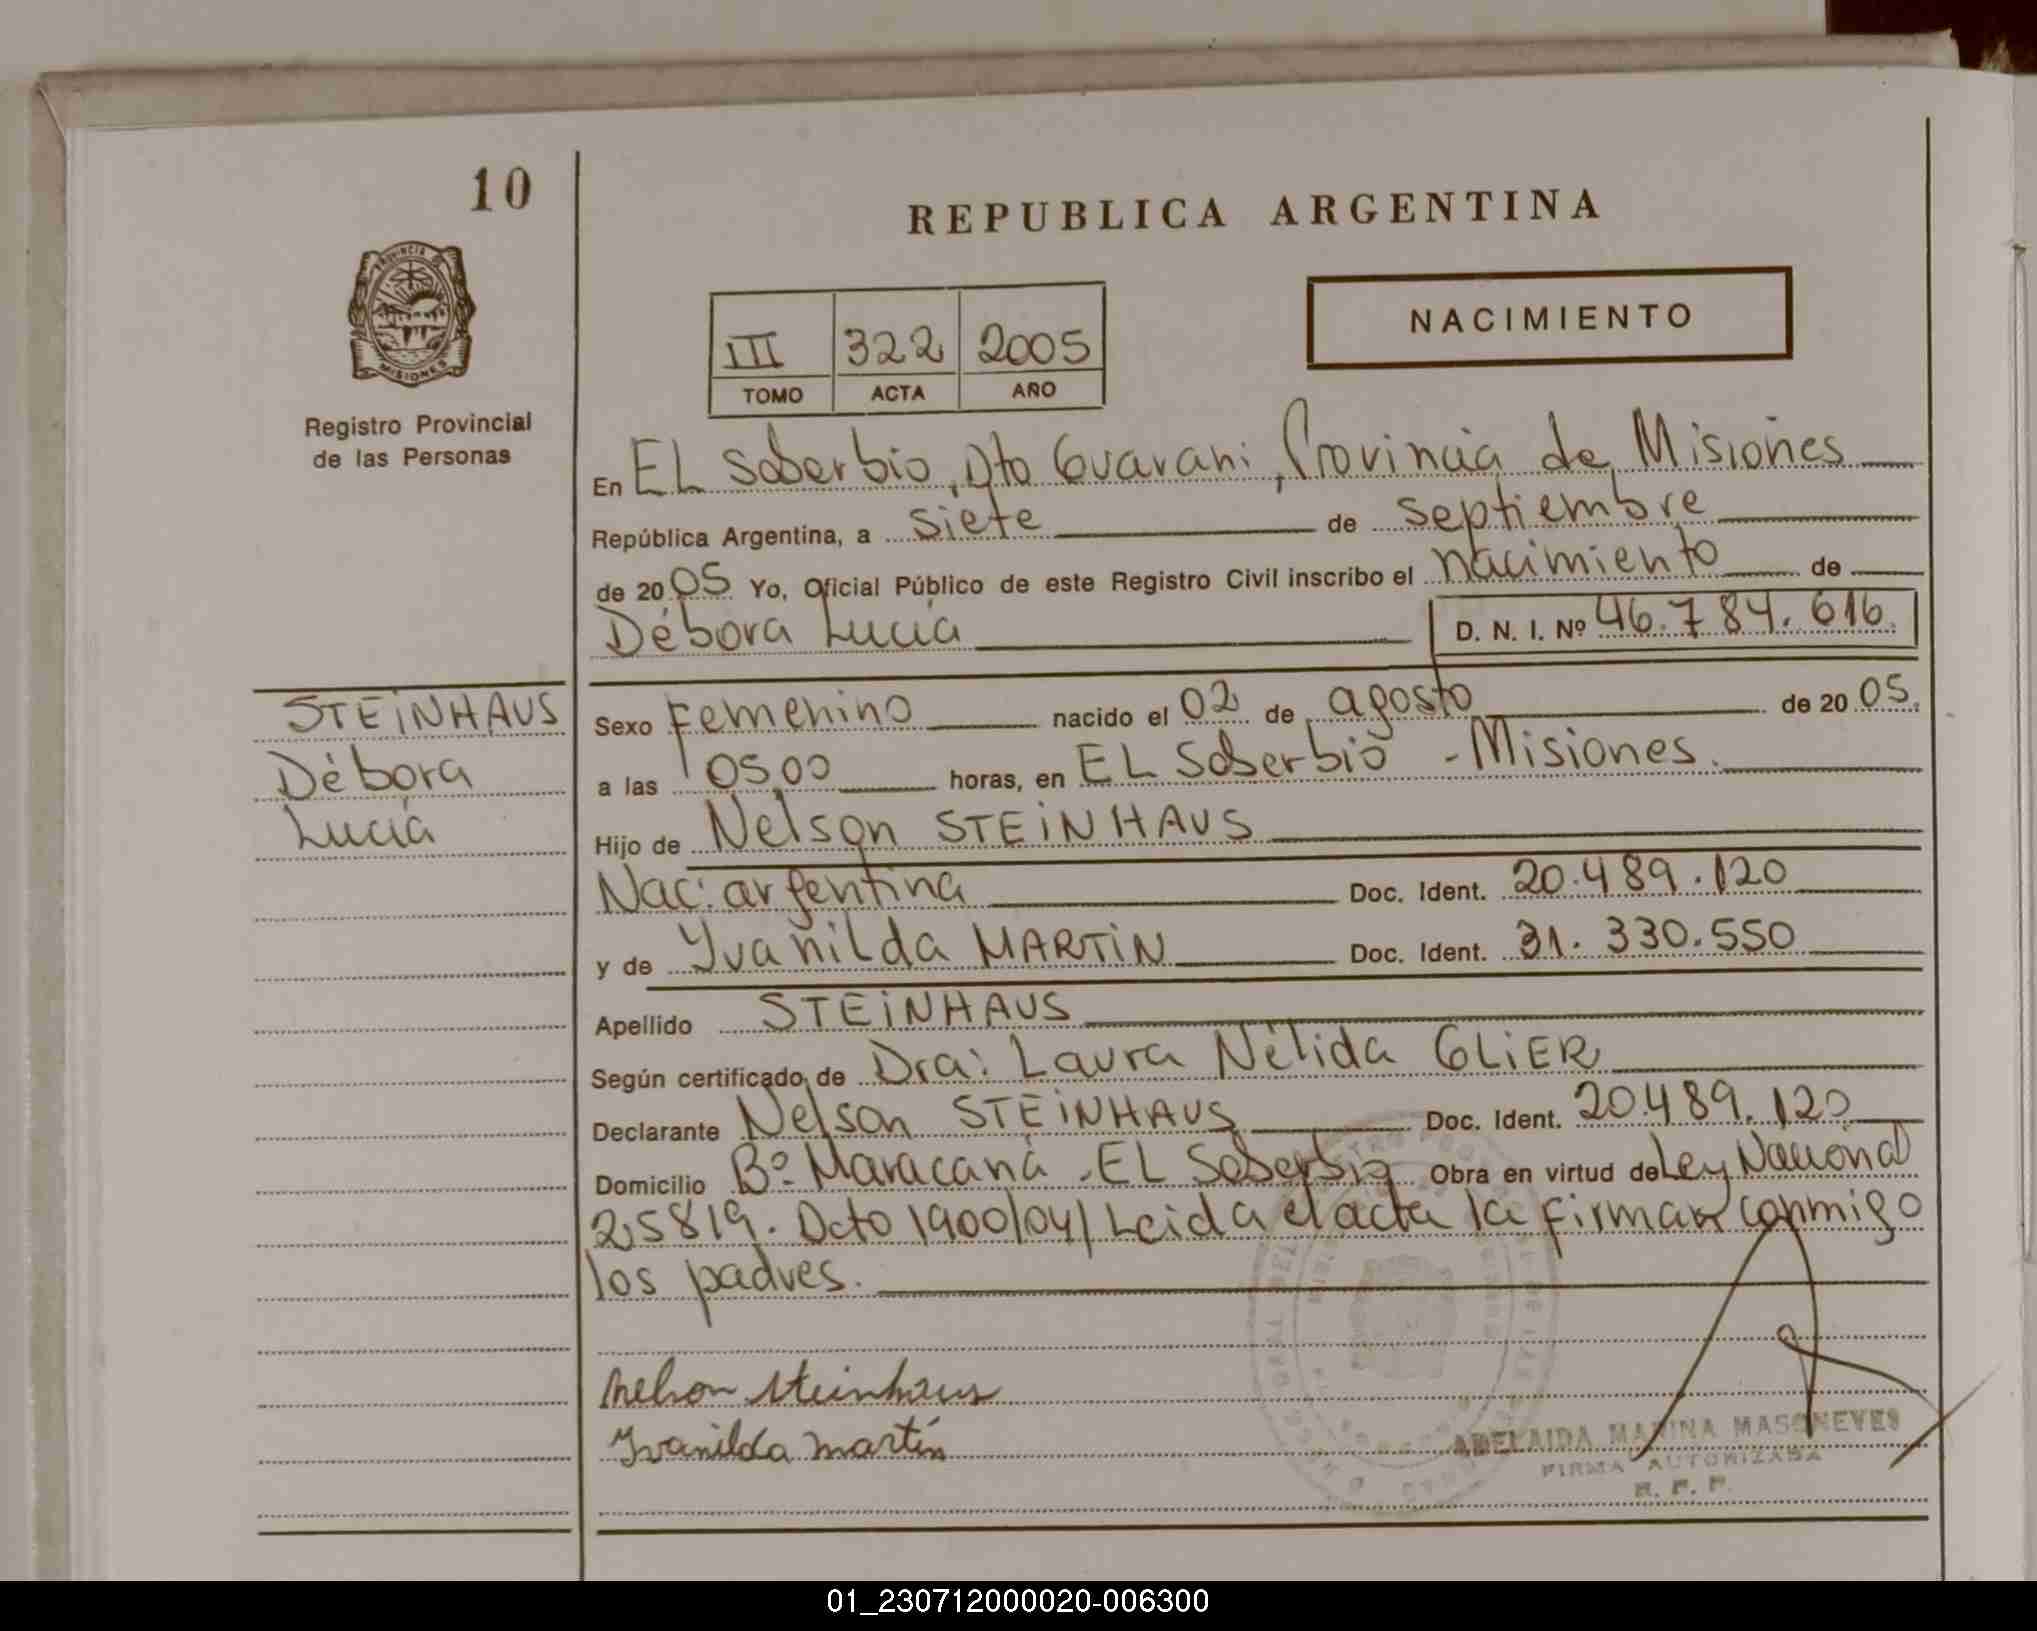 10
REPUBLICA ARGENTINA
PROVINCIA DE
MISIONES
Registro Provincial
de las Personas
NACIMIENTO
III 322 2005
TOMO ACTA AÑO
En EL Soberbio, Dto Guarani, Provincia de Misiones
República Argentina, a siete de septiembre
de 2005 Yo, Oficial Público de este Registro Civil inscribo el nacimiento de
Débora Lucía D. N. I. Nº 46.784.616.
STEINHAUS
Débora
Lucía
Sexo Femenino nacido el 02 de agosto de 2005.
a las 05,00 horas, en EL Soberbio - Misiones.
Hijo de Nelson STEINHAUS
Nac: argentina Doc. Ident. 20.489.120
y de Yvanilda MARTIN Doc. Ident. 31.330.550
Apellido STEINHAUS
Según certificado de Dra: Laura Nélida GLIER
Declarante Nelson STEINHAUS Doc. Ident. 20.489.120
Domicilio Bº Maracaná - EL Soberbio Obra en virtud de Ley Nacional
25819. Dcto 1900/04/ Leida el acta la firman conmigo
los padres.
Nelson Steinhaus
Yvanilda Martín
ADELAIDA MARINA MASONEVES
FIRMA AUTORIZADA
R. P. P.
01_230712000020-006300